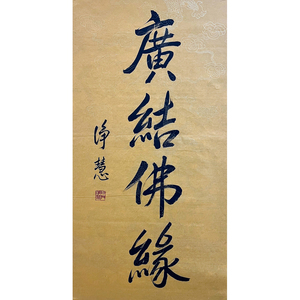 廣結佛緣
淨慧